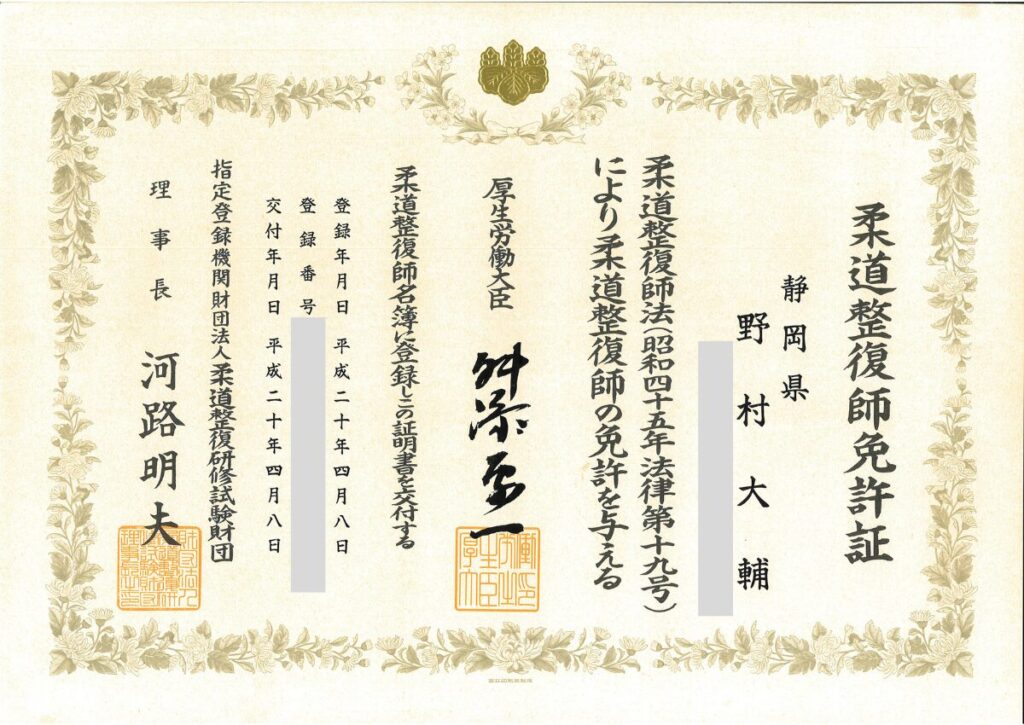 柔道整復師免許証
静岡県
野村大輔
柔道整復師法(昭和四十五年法律第十九号)
により柔道整復師の免許を与える
厚生労働大臣 舛添要一
柔道整復師名簿に登録しこの証明書を交付する
登録年月日 平成二十年四月八日
登録番号
交付年月日 平成二十年四月八日
指定登録機関財団法人柔道整復研修試験財団
理事長 河路明夫